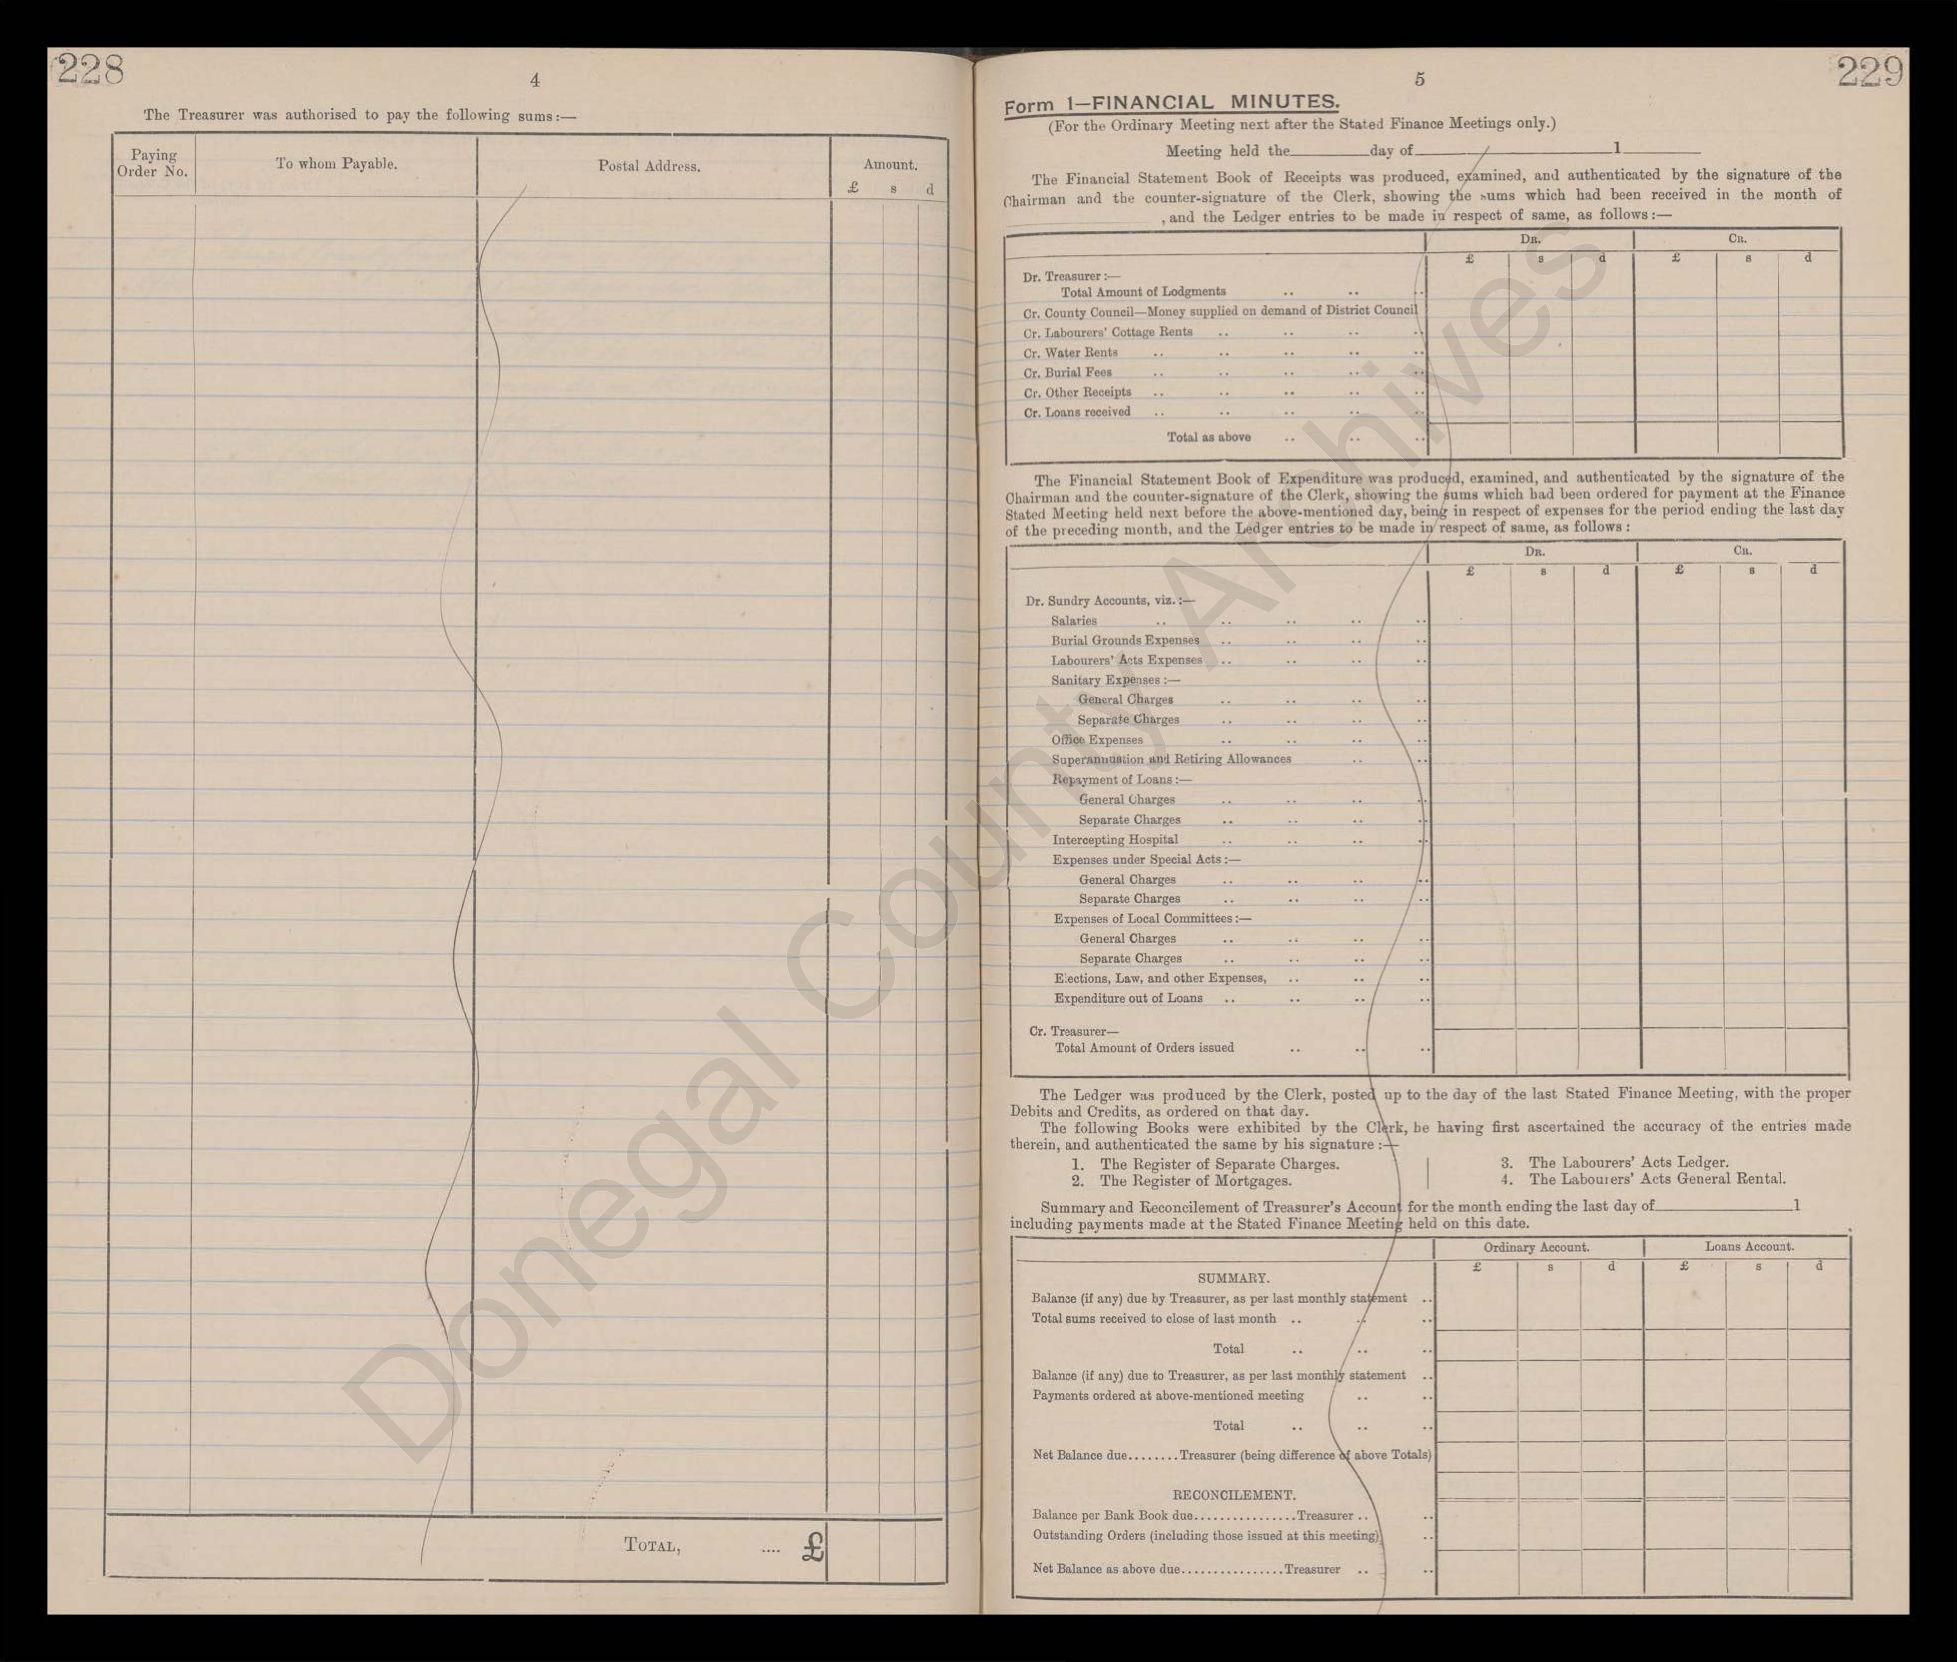 228
4
The Treasurer was authorised to pay the following sums:—
Paying Order No.
To whom Payable.
Postal Address.
Amount.
£ s d
TOTAL, .... £
229
5
Form 1—FINANCIAL MINUTES.
(For the Ordinary Meeting next after the Stated Finance Meetings only.)
Meeting held the day of 1
The Financial Statement Book of Receipts was produced, examined, and authenticated by the signature of the
Chairman and the counter-signature of the Clerk, showing the sums which had been received in the month of
, and the Ledger entries to be made in respect of same, as follows:—
DR. CR.
£ s d £ s d
Dr. Treasurer:—
Total Amount of Lodgments .. .. ..
Cr. County Council—Money supplied on demand of District Council
Cr. Labourers' Cottage Rents .. .. .. ..
Cr. Water Rents .. .. .. .. ..
Cr. Burial Fees .. .. .. .. ..
Cr. Other Receipts .. .. .. .. ..
Cr. Loans received .. .. .. .. ..
Total as above .. .. ..
The Financial Statement Book of Expenditure was produced, examined, and authenticated by the signature of the
Chairman and the counter-signature of the Clerk, showing the sums which had been ordered for payment at the Finance
Stated Meeting held next before the above-mentioned day, being in respect of expenses for the period ending the last day
of the preceding month, and the Ledger entries to be made in respect of same, as follows:
DR. CR.
£ s d £ s d
Dr. Sundry Accounts, viz.:—
Salaries .. .. .. .. ..
Burial Grounds Expenses .. .. .. ..
Labourers' Acts Expenses .. .. .. ..
Sanitary Expenses:—
General Charges .. .. .. ..
Separate Charges .. .. .. ..
Office Expenses .. .. .. ..
Superannuation and Retiring Allowances .. ..
Repayment of Loans:—
General Charges .. .. .. ..
Separate Charges .. .. .. ..
Intercepting Hospital .. .. .. ..
Expenses under Special Acts:—
General Charges .. .. .. ..
Separate Charges .. .. .. ..
Expenses of Local Committees:—
General Charges .. .. .. ..
Separate Charges .. .. .. ..
Elections, Law, and other Expenses, .. .. ..
Expenditure out of Loans .. .. .. ..
Cr. Treasurer—
Total Amount of Orders issued .. .. ..
The Ledger was produced by the Clerk, posted up to the day of the last Stated Finance Meeting, with the proper
Debits and Credits, as ordered on that day.
The following Books were exhibited by the Clerk, he having first ascertained the accuracy of the entries made
therein, and authenticated the same by his signature:—
1. The Register of Separate Charges.
2. The Register of Mortgages.
3. The Labourers' Acts Ledger.
4. The Labourers' Acts General Rental.
Summary and Reconcilement of Treasurer's Account for the month ending the last day of 1
including payments made at the Stated Finance Meeting held on this date.
Ordinary Account. Loans Account.
£ s d £ s d
SUMMARY.
Balance (if any) due by Treasurer, as per last monthly statement ..
Total sums received to close of last month .. .. ..
Total .. .. ..
Balance (if any) due to Treasurer, as per last monthly statement ..
Payments ordered at above-mentioned meeting .. ..
Total .. .. ..
Net Balance due........Treasurer (being difference of above Totals)
RECONCILEMENT.
Balance per Bank Book due................Treasurer .. ..
Outstanding Orders (including those issued at this meeting) ..
Net Balance as above due................Treasurer .. ..
Donegal County Archives